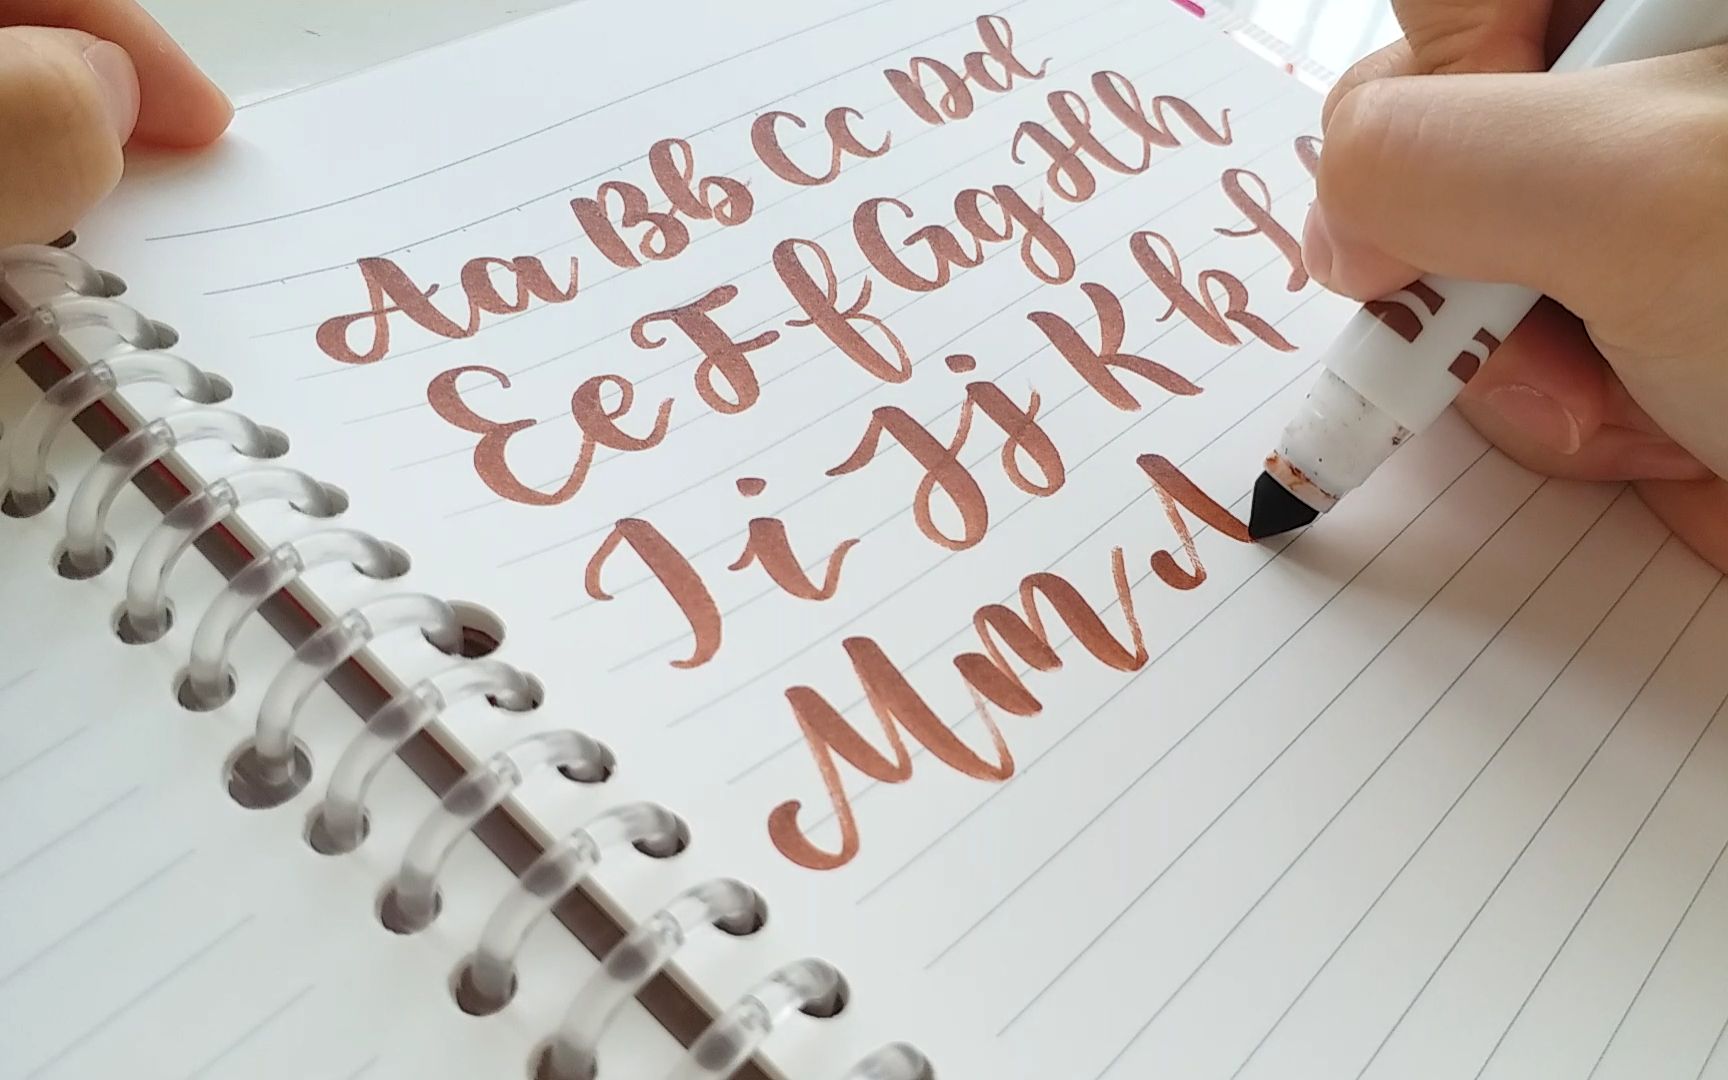 Aa Bb Cc Dd
Ee Ff Gg Hh
Ii Jj Kk L
Mm N